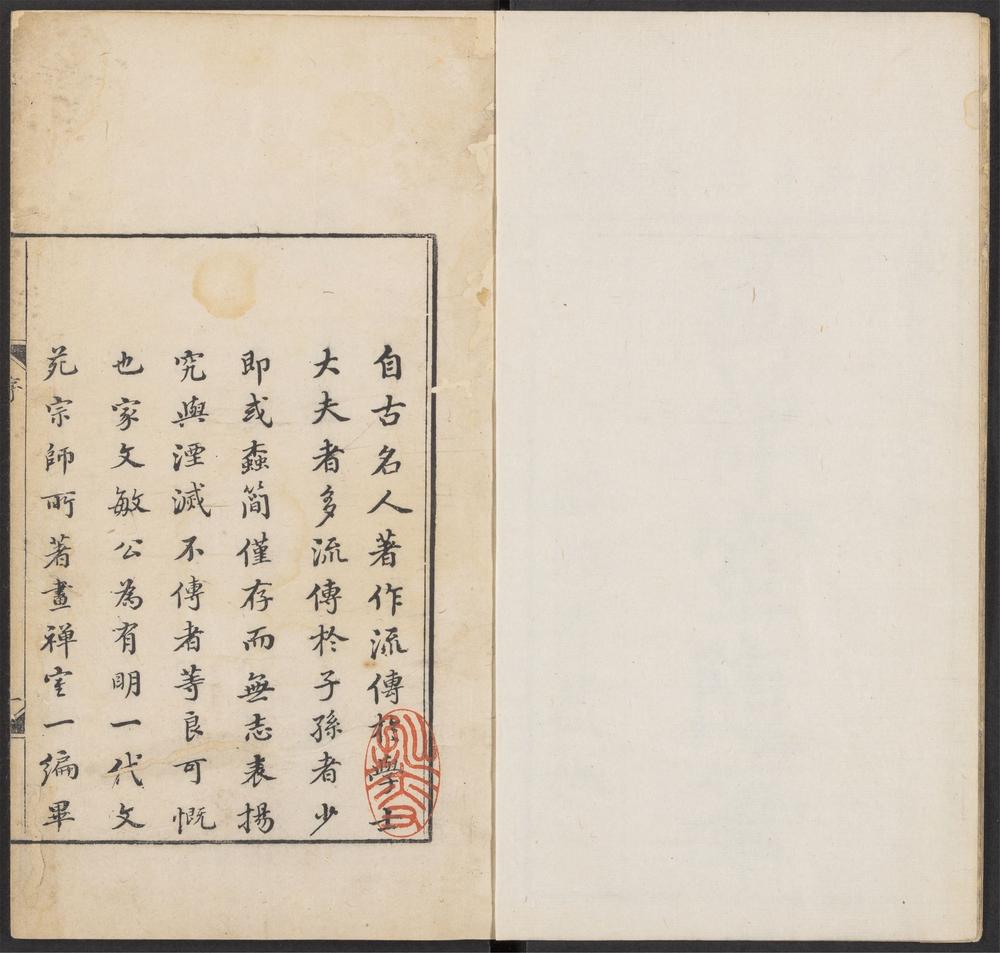 自古名人著作流傳於學士
大夫者多流傳於子孫者少
即或蠹簡僅存而無志表揚
究與湮滅不傳者等良可慨
也家文敏公為有明一代文
苑宗師所著畫禪室一編畢
序